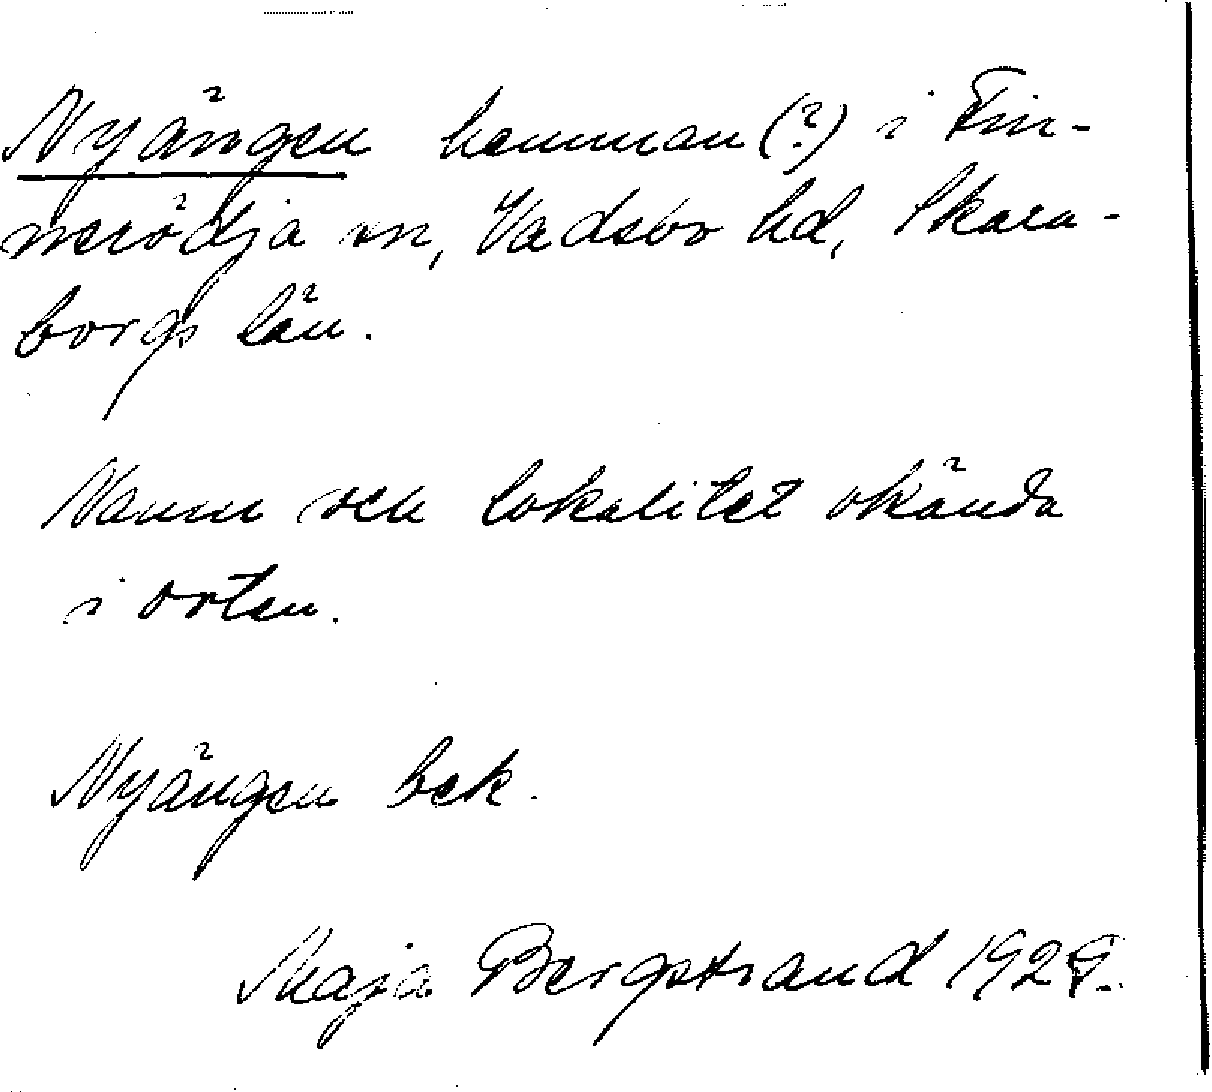 Nyängen hemman (?) i Fin-
nerödja sn, Vadsbo hd, Skara-
borgs län.
Namn och lokalitet okända
i orten.
Nyängen bek.
Maja Bergstrand